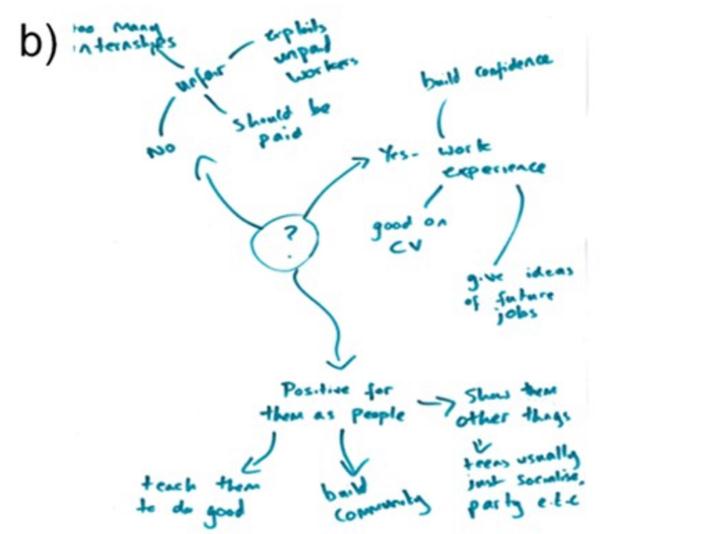 b)
too many
internships
exploits
unpaid
workers
unfair
should be
paid
NO
build confidence
Yes- work
experience
good on
CV
give ideas
of future
jobs
?
Positive for
them as people
Show them
other things
teens usually
just socialise,
party e.t.c
teach them
to do good
build
community